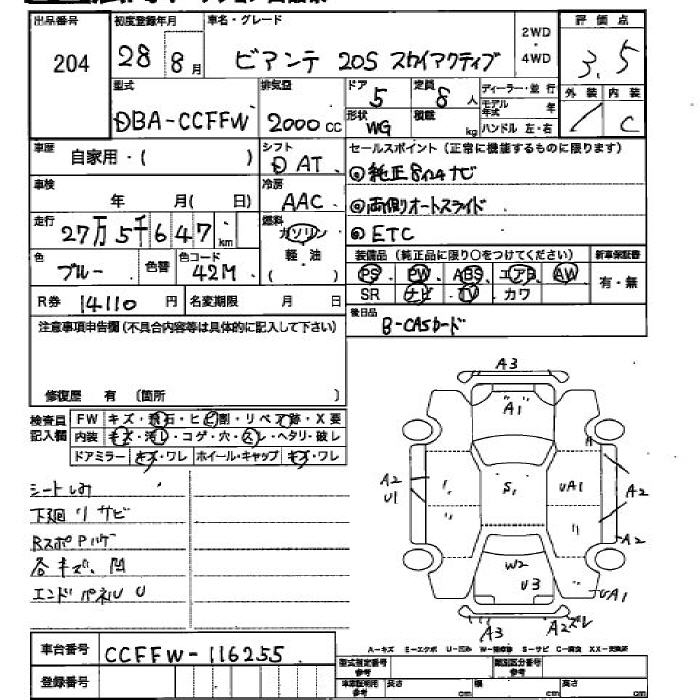 出品番号 初度登録年月 車名・グレード 2WD・4WD 評価点
204 28 8月 ビアンテ 20S スカイアクティブ 3.5
型式 排気量 ドア 定員 ディーラー・並行 外装 内装
DBA-CCFFW 2000cc 5 8人 モデル年式 年 / C
形状 WG 積載 kg ハンドル 左・右
車歴 自家用・( ) シフト D AT セールスポイント(正常に機能するものに限ります)
車検 年 月( 日) 冷房 AAC ◎純正8インチナビ
走行 27万5千647km 燃料 ガソリン ◎両側オートスライド
軽・油 ( ) ◎ETC
色 ブルー 色替 色コード 42M 装備品(純正品に限り○をつけてください) 新車保証書
PS PW ABS エアB AW 有・無
SR ナビ TV カワ
R券 14110円 名変期限 月 日 後日品
B-CASカード
注意事項申告欄(不具合内容等は具体的に記入して下さい)
修復歴 有 〔箇所 〕
検査員記入欄 FW キズ・飛石・ヒビ割・リペア跡・X要
内装 キズ・汚レ・コゲ・穴・スレ・ヘタリ・破レ
ドアミラー キズ・ワレ ホイール・キャップ キズ・ワレ
シートしみ
下廻リサビ
RスポPハゲ
各キズ、凹
エンドパネルU
A3
A1
A2
U1
S1
UA1
A2
A2
W2
U3
UA1
A3 A2ズレ
A-キズ E-エクボ U-凹み W-補修跡 S-サビ C-腐食 XX-交換済
車台番号 CCFFW-116255
登録番号
型式指定番号 参考 類別区分番号 参考
車庫証明用 参考 長さ cm 幅 cm 高さ cm